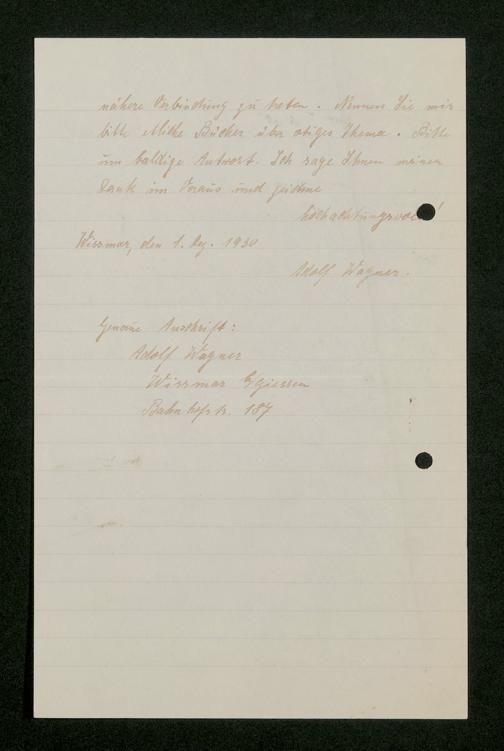 nähere Verbindung zu treten. Nennen Sie mir
bitte etliche Bücher über obiges Thema. Bitte
um baldige Antwort. Ich sage Ihnen meinen
Dank im Voraus und zeichne
hochachtungsvoll!
Wissmar, den 1. Dez. 1930
Adolf Wagner.
Genaue Anschrift:
Adolf Wagner
Wissmar b/Giessen
Bahnhofstr. 187